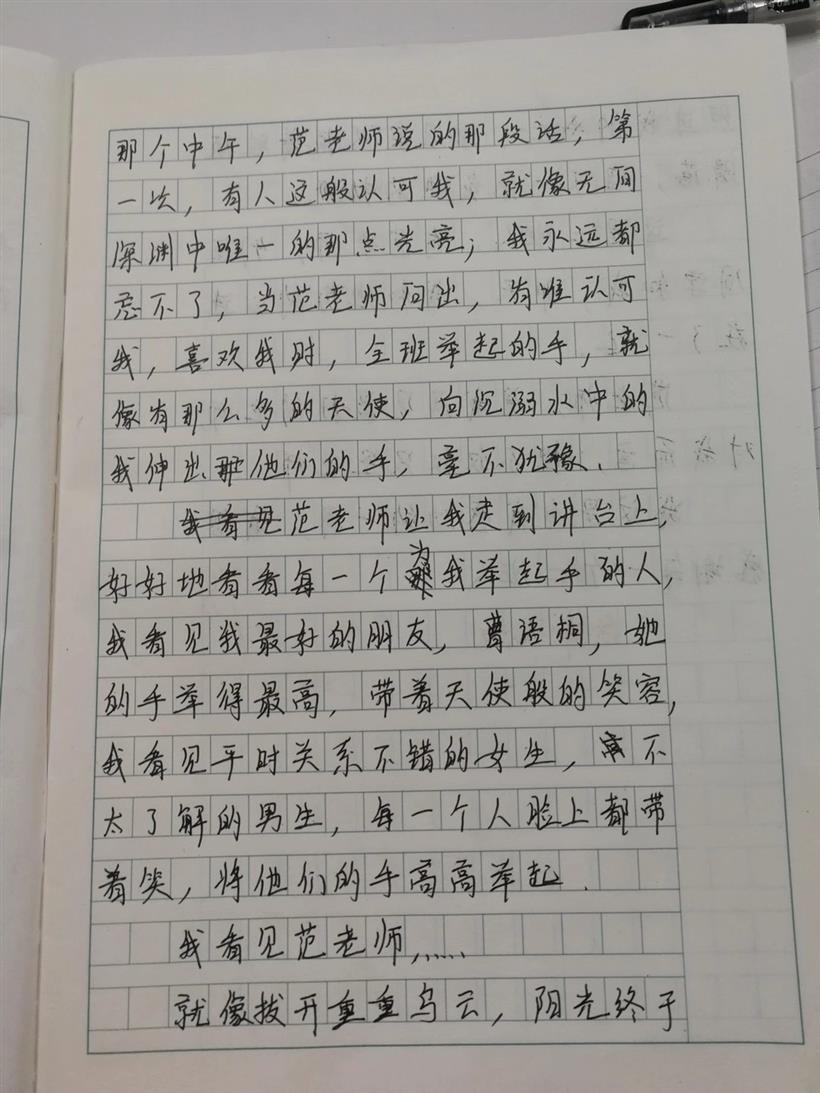 那个中午，范老师说的那段话，第
一次，有人这般认可我，就像无间
深渊中唯一的那点光亮；我永远都
忘不了，当范老师问出，有谁认可
我，喜欢我时，全班举起的手，就
像有那么多的天使，向沉溺水中的
我伸出他们的手，毫不犹豫.
范老师让我走到讲台上，
好好地看看每一个为我举起手的人，
我看见我最好的朋友，曹语桐，她
的手举得最高，带着天使般的笑容，
我看见平时关系不错的女生，不
太了解的男生，每一个人脸上都带
着笑，将他们的手高高举起.
我看见范老师，……
就像拨开重重乌云，阳光终于